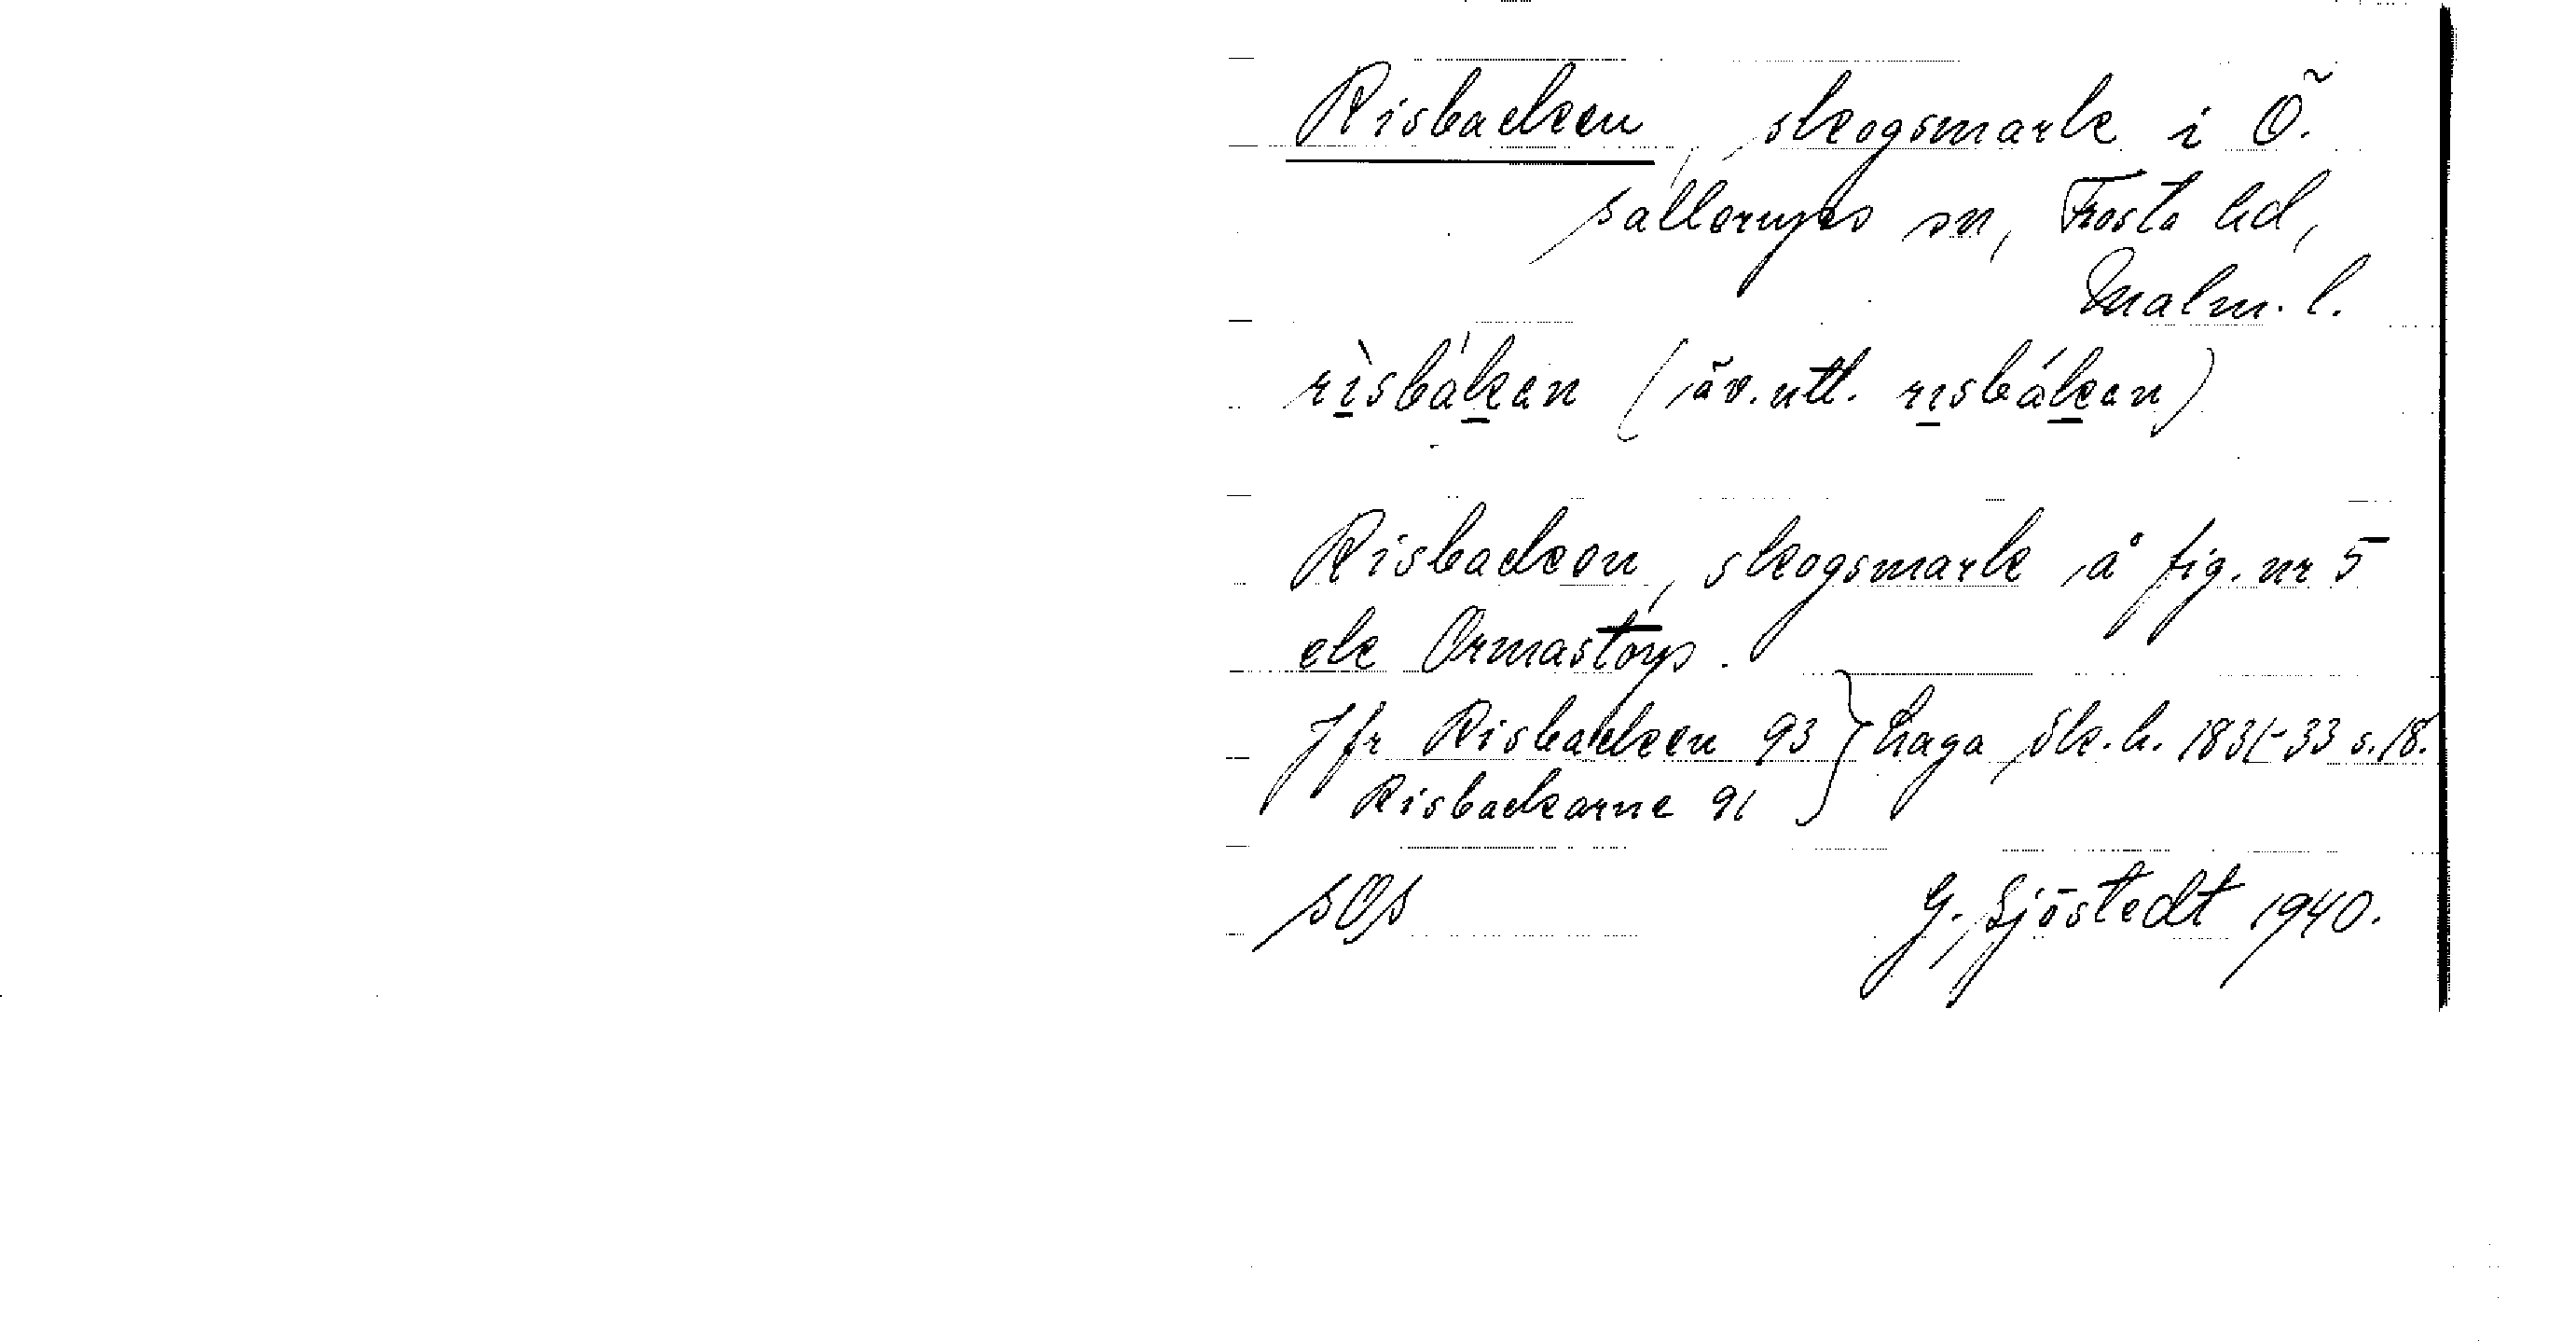 Risbacken, skogsmark i Ö.
Sallerups sn, Frosta hd,
Malm. l.
rìsbákan (äv. utt. rısbákan)
Risbacken, skogsmark å fig. nr 5
ek Ormastorp.
Jfr Risbacken 93 } Laga sk.h. 1831-33 s. 18.
Risbackarne 91
SOS G. Sjöstedt 1940.